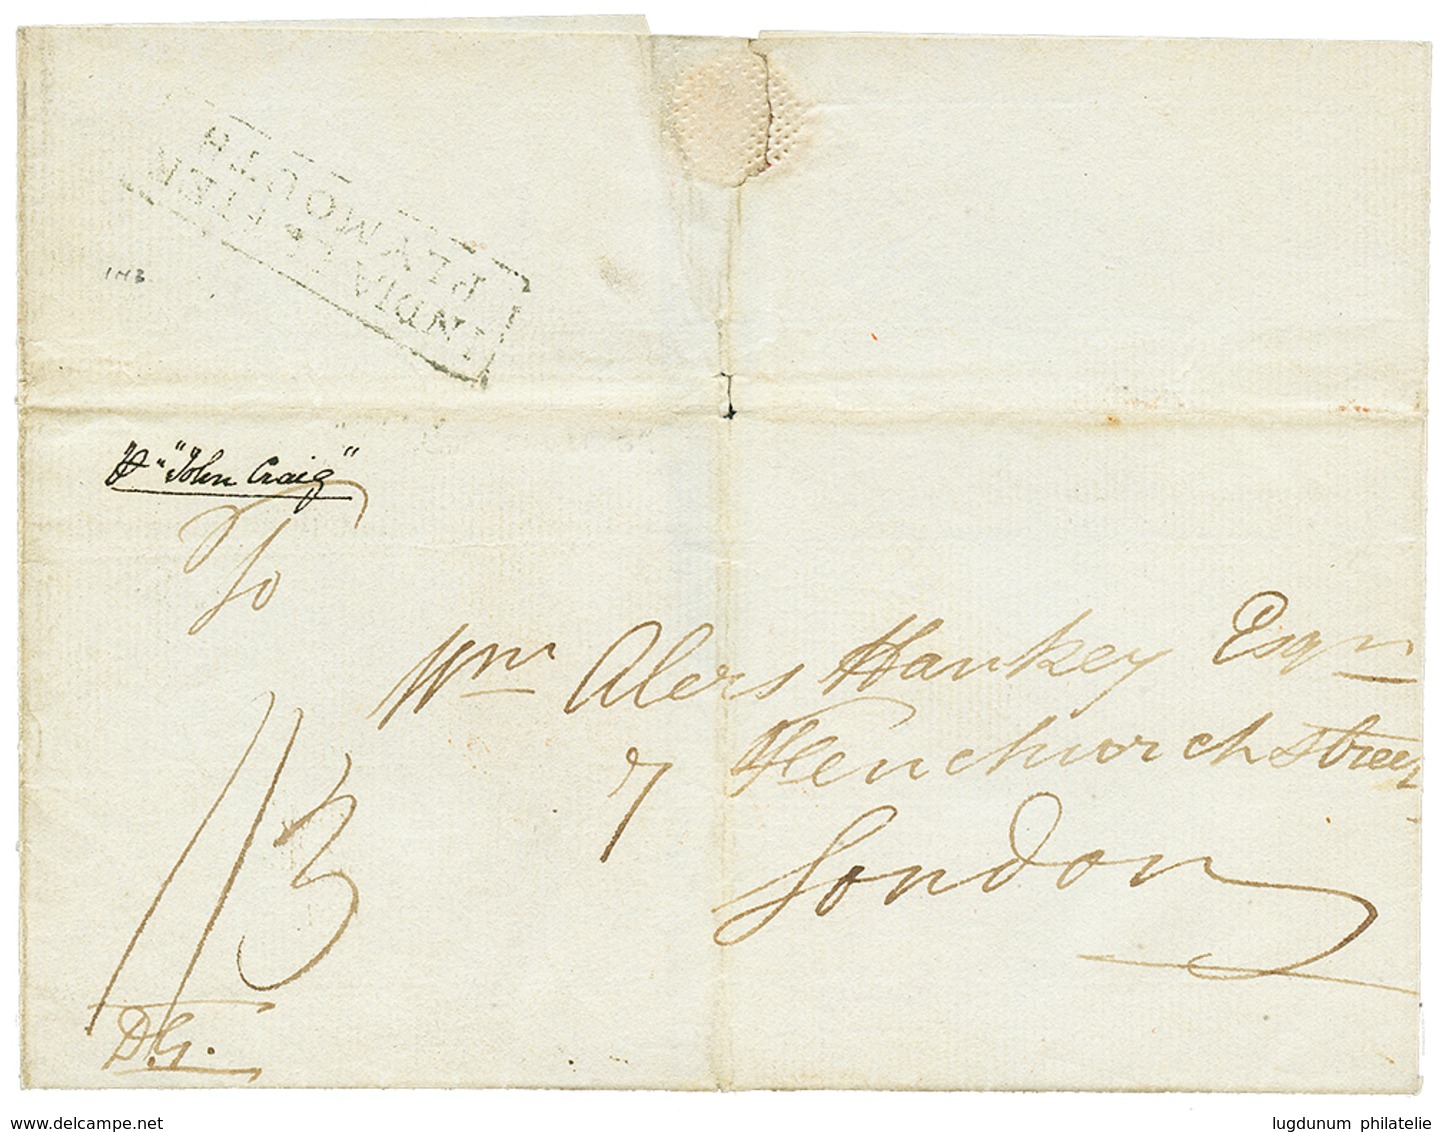 INDIA LETTER
PLYMOUTH
1142
pr "John Craig"
To
Wm Alers Hankey Esqr
7 Fenchurch Street
London
1/3
D.G.
www.delcampe.net
lugdunum philatelie